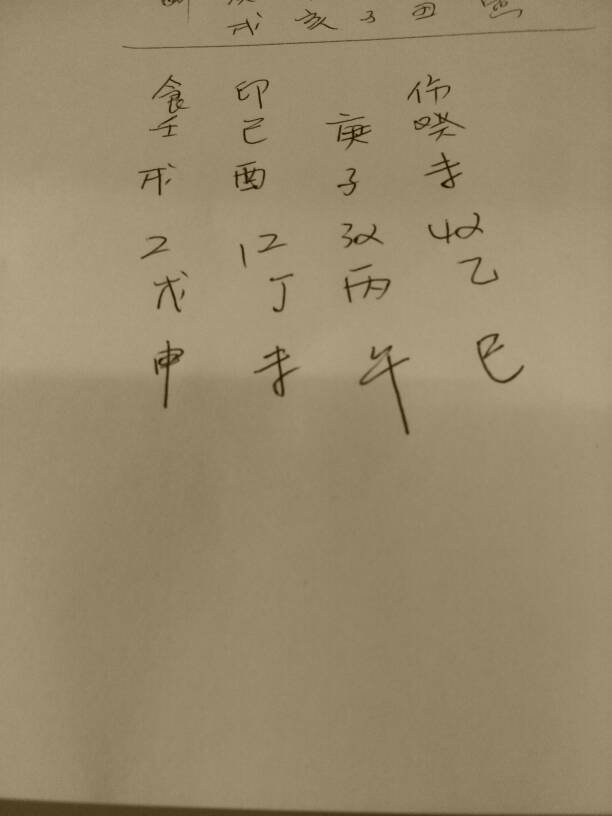 戌 亥 子 丑
食 印 伤
壬 己 庚 癸
戌 酉 子 未
2 12 32 42
戊 丁 丙 乙
申 未 午 巳